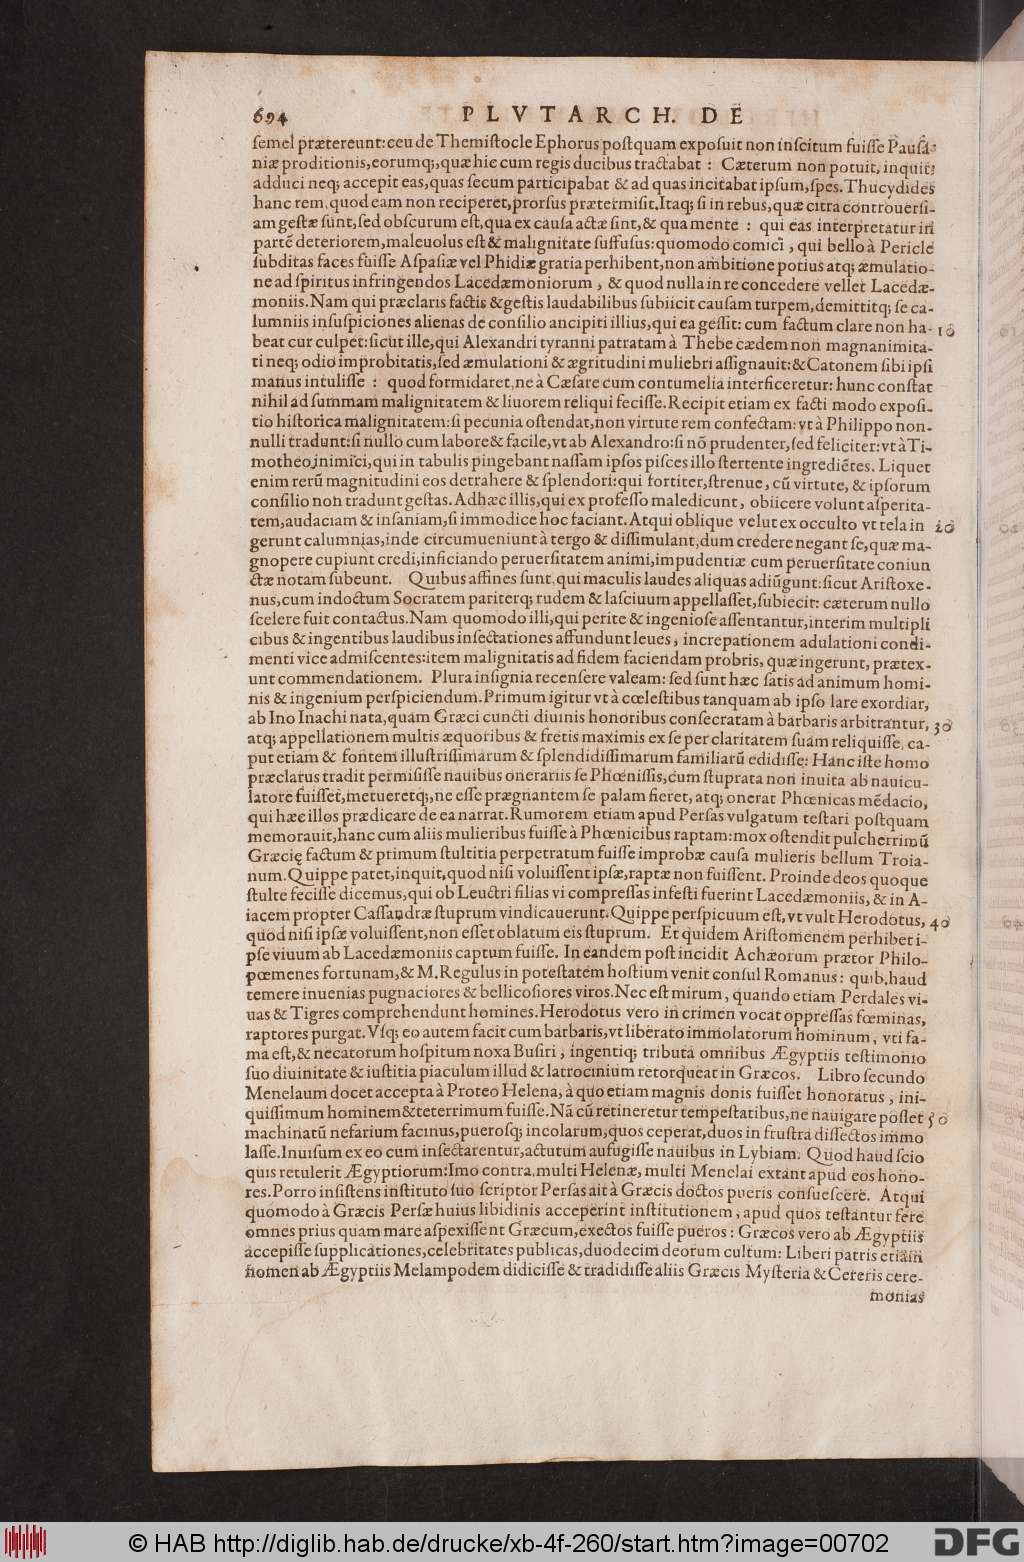 694 PLVTARCH. DE
semel prætereunt: ceu de Themistocle Ephorus postquam exposuit non inscitum fuisse Pausa-
niæ proditionis, eorumq;, quæ hic cum regis ducibus tractabat : Cæterum non potuit, inquit:
adduci neq; accepit eas, quas secum participabat & ad quas incitabat ipsum, spes. Thucydides
hanc rem, quod eam non reciperet, prorsus prætermisit. Itaq; si in rebus, quæ citra controuersi-
am gestæ sunt, sed obscurum est, qua ex causa actæ sint, & qua mente : qui eas interpretatur in
partē deteriorem, maleuolus est & malignitate suffusus: quomodo comici , qui bello à Pericle
subditas faces fuisse Aspasiæ vel Phidiæ gratia perhibent, non ambitione potius atq; æmulatio-
ne ad spiritus infringendos Lacedæmoniorum , & quod nulla in re concedere vellet Lacedæ-
moniis. Nam qui præclaris factis & gestis laudabilibus subiicit causam turpem, demittitq; se ca-
lumniis in suspiciones alienas de consilio ancipiti illius, qui ea gessit: cum factum clare non ha- 10
beat cur culpet: sicut ille, qui Alexandri tyranni patratam à Thebe cædem non magnanimita-
ti neq; odio improbitatis, sed æmulationi & ægritudini muliebri assignauit: & Catonem sibi ipsi
manus intulisse : quod formidaret, ne à Cæsare cum contumelia interficeretur: hunc constat
nihil ad summam malignitatem & liuorem reliqui fecisse. Recipit etiam ex facti modo exposi-
tio historica malignitatem: si pecunia ostendat, non virtute rem confectam: vt à Philippo non-
nulli tradunt: si nullo cum labore & facile, vt ab Alexandro: si nō prudenter, sed feliciter: vt à Ti-
motheo inimici, qui in tabulis pingebant nassam ipsos pisces illo stertente ingrediētes. Liquet
enim rerū magnitudini eos detrahere & splendori: qui fortiter, strenue, cū virtute, & ipsorum
consilio non tradunt gestas. Adhæc illis, qui ex professo maledicunt, obiicere volunt asperita-
tem, audaciam & insaniam, si immodice hoc faciant. Atqui oblique velut ex occulto vt tela in 20
gerunt calumnias, inde circumueniunt à tergo & dissimulant, dum credere negant se, quæ ma-
gnopere cupiunt credi, inficiando peruersitatem animi, impudentiæ cum peruersitate coniun
ctæ notam subeunt. Quibus affines sunt, qui maculis laudes aliquas adiūgunt: sicut Aristoxe-
nus, cum indoctum Socratem pariterq; rudem & lasciuum appellasset, subiecit: cæterum nullo
scelere fuit contactus. Nam quomodo illi, qui perite & ingeniose assentantur, interim multipli
cibus & ingentibus laudibus insectationes affundunt leues, increpationem adulationi condi-
menti vice admiscentes: item malignitatis ad fidem faciendam probris, quæ ingerunt, prætex-
unt commendationem. Plura insignia recensere valeam: sed sunt hæc satis ad animum homi-
nis & ingenium perspiciendum. Primum igitur vt à cœlestibus tanquam ab ipso lare exordiar,
ab Ino Inachi nata, quam Græci cuncti diuinis honoribus consecratam à barbaris arbitrantur, 30
atq; appellationem multis æquoribus & fretis maximis ex se per claritatem suam reliquisse, ca-
put etiam & fontem illustrissimarum & splendidissimarum familiarū edidisse: Hanc iste homo
præclarus tradit permisisse nauibus onerariis se Phœnissis, cum stuprata non inuita ab nauicu-
latore fuisset, metueretq;, ne esse prægnantem se palam fieret, atq; onerat Phœnicas mēdacio,
qui hæc illos prædicare de ea narrat. Rumorem etiam apud Persas vulgatum testari postquam
memorauit, hanc cum aliis mulieribus fuisse à Phœnicibus raptam: mox ostendit pulcherrimū
Græcię factum & primum stultitia perpetratum fuisse improbæ causa mulieris bellum Troia-
num. Quippe patet, inquit, quod nisi voluissent ipsæ, raptæ non fuissent. Proinde deos quoque
stulte fecisse dicemus, qui ob Leuctri filias vi compressas infesti fuerint Lacedæmoniis, & in A-
iacem propter Cassandræ stuprum vindicauerunt. Quippe perspicuum est, vt vult Herodotus, 40
quod nisi ipsæ voluissent, non esset oblatum eis stuprum. Et quidem Aristomenem perhibet i-
pse viuum ab Lacedæmoniis captum fuisse. In eandem post incidit Achæorum prætor Philo-
pœmenes fortunam, & M. Regulus in potestatem hostium venit consul Romanus: quib. haud
temere inuenias pugnaciores & bellicosiores viros. Nec est mirum, quando etiam Perdales vi-
uas & Tigres comprehendunt homines. Herodotus vero in crimen vocat oppressas fœminas,
raptores purgat. Vsq; eo autem facit cum barbaris, vt liberato immolatorum hominum, vti fa-
ma est, & necatorum hospitum noxa Busiri, ingentiq; tributa omnibus Ægyptiis testimonio
suo diuinitate & iustitia piaculum illud & latrocinium retorqueat in Græcos. Libro secundo
Menelaum docet accepta à Proteo Helena, à quo etiam magnis donis fuisset honoratus, ini-
quissimum hominem & teterrimum fuisse. Nā cū retineretur tempestatibus, ne nauigare posset 50
machinatū nefarium facinus, puerosq; incolarum, quos ceperat, duos in frustra dissectos immo
lasse. Inuisum ex eo cum insectarentur, actutum aufugisse nauibus in Lybiam. Quod haud scio
quis retulerit Ægyptiorum: Imo contra, multi Helenæ, multi Menelai extant apud eos hono-
res. Porro insistens instituto suo scriptor Persas ait à Græcis doctos pueris consuescere. Atqui
quomodo à Græcis Persæ huius libidinis acceperint institutionem, apud quos testantur fere
omnes prius quam mare aspexissent Græcum, exectos fuisse pueros : Græcos vero ab Ægyptiis
accepisse supplicationes, celebritates publicas, duodecim deorum cultum: Liberi patris etiam
nomen ab Ægyptiis Melampodem didicisse & tradidisse aliis Græcis Mysteria & Cereris cere-
monias
© HAB http://diglib.hab.de/drucke/xb-4f-260/start.htm?image=00702
DFG